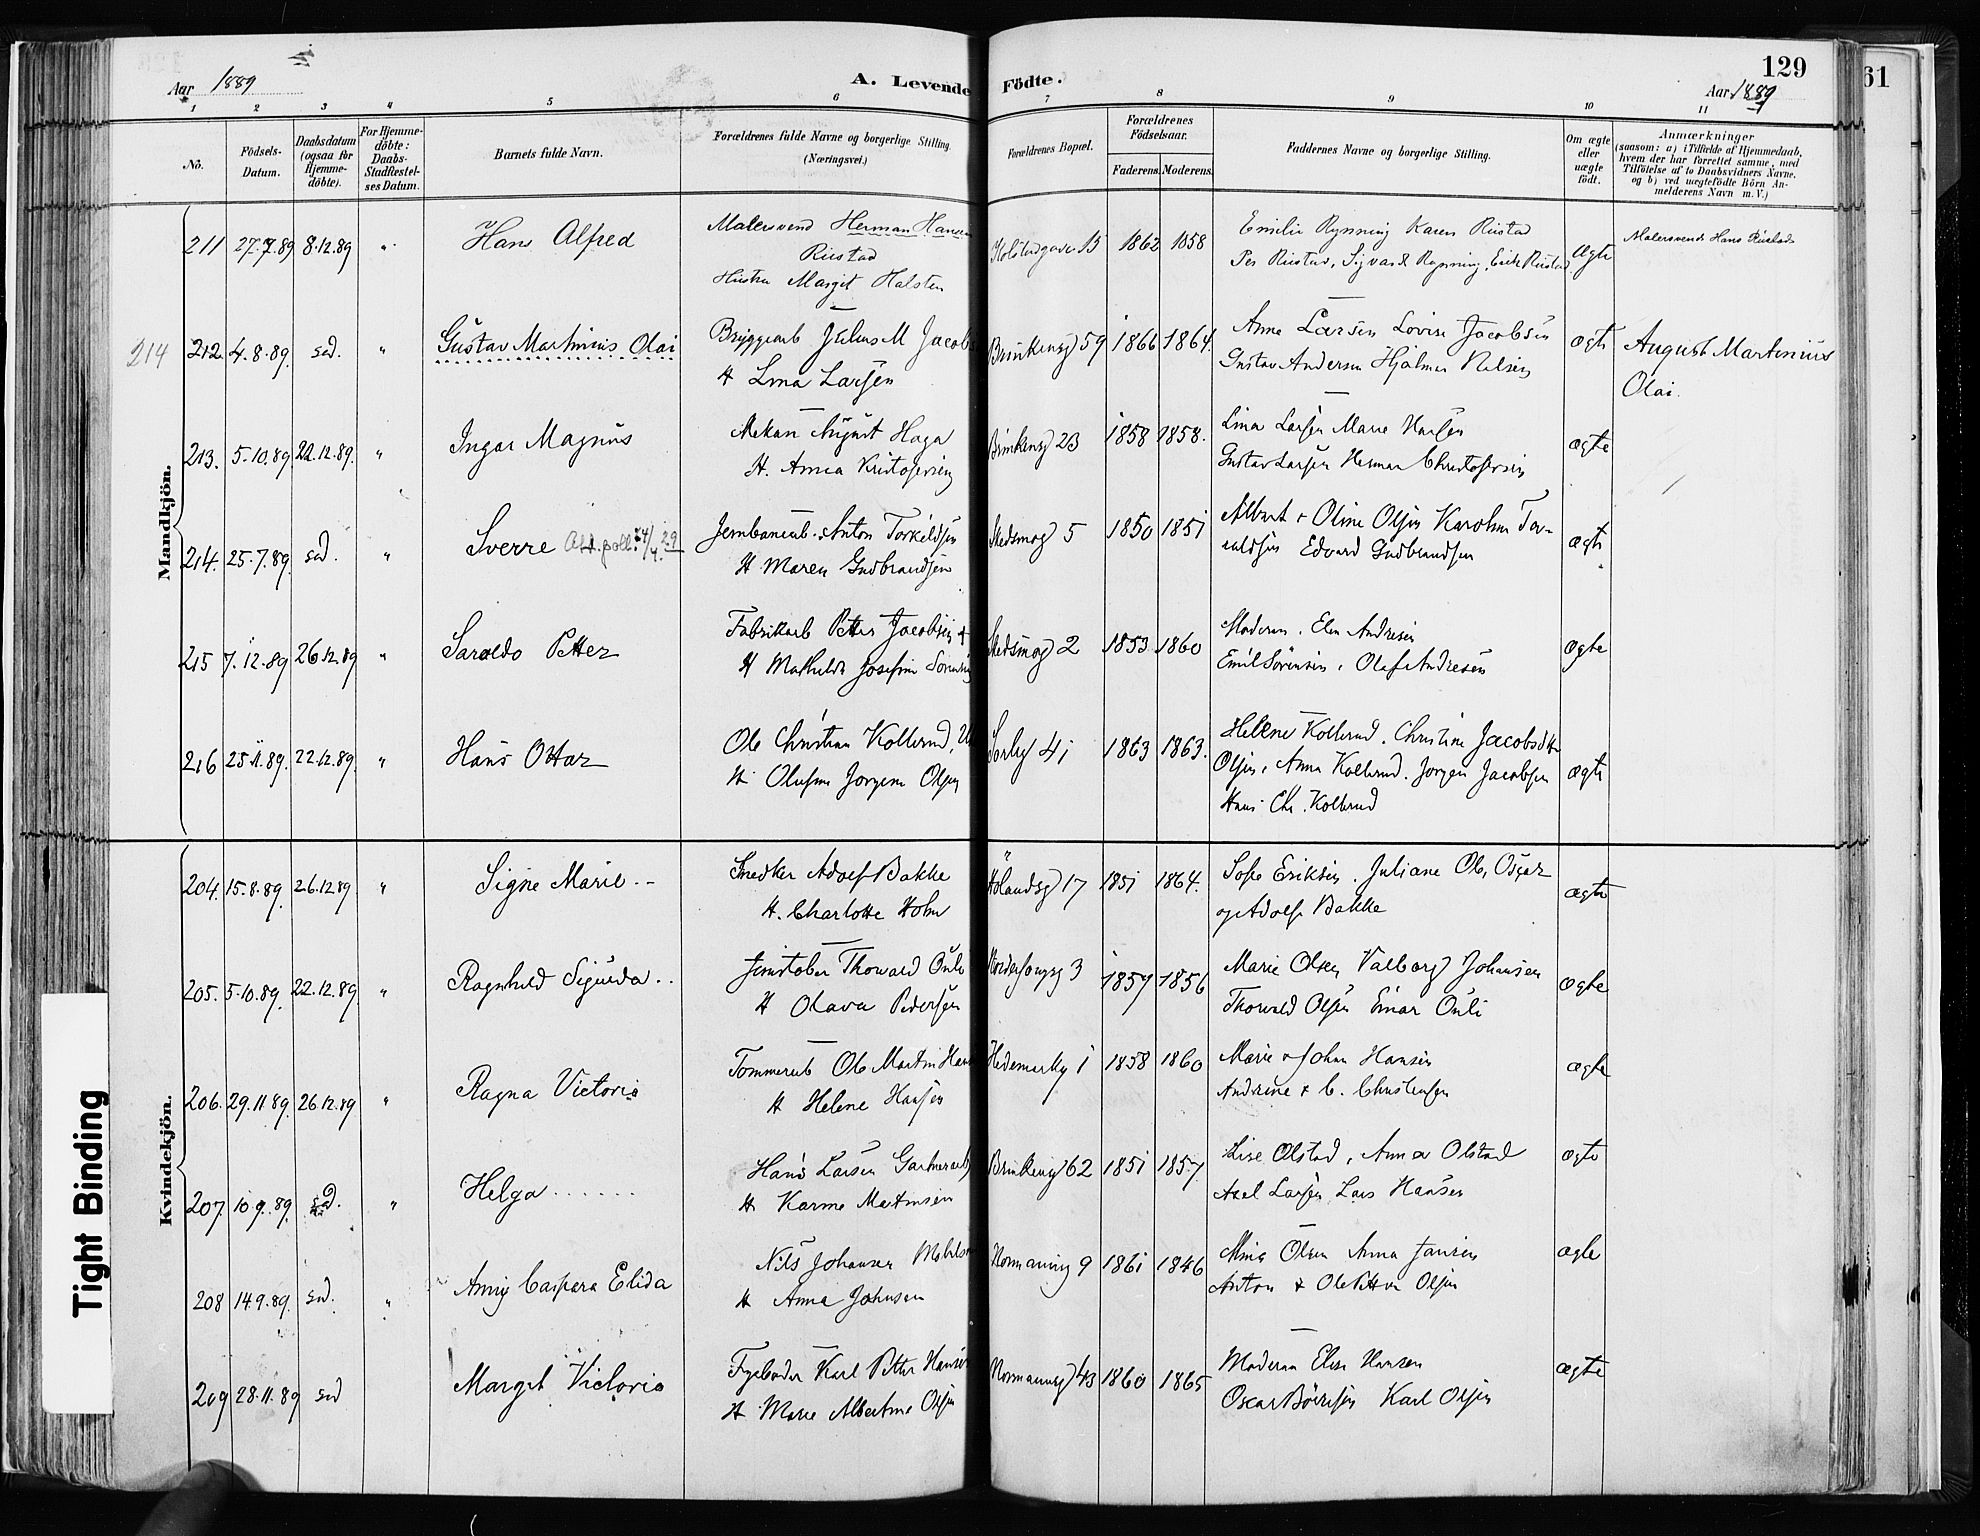 Aar 1889
A. Levende Födte.
129
Aar 1889
61
1 2 3 4 5 6 7 8 9 10 11
No.
Födsels-Datum.
Daabsdatum (ogsaa for Hjemme-döbte).
For Hjemme-döbte: Daabs-Stadfæstel-ses Datum.
Barnets fulde Navn.
Forældrenes fulde Navne og borgerlige Stilling. (Næringsvei.)
Forældrenes Bopæl.
Forældrenes Födselsaar.
Faderens. Moderens.
Faddernes Navne og borgerlige Stilling.
Om ægte eller uægte födt.
Anmærkninger
(saasom: a) i Tilfælde af Hjemmedaab,
hvem der har forrettet samme, med
Tilföielse af to Daabsvidners Navne.
og b) ved uægtefödte Börn An-
melderens Navn m.V.)
Mandkjön.
211 27.7.89 8.12.89 " Hans Alfred
Malersvend Herman Hansen
Rustad
Hustru Margit Halsten
15 1862 1858
Emilie Rynning Karen Rustad
Per Rustad, Sigvard Rynning, Erik Rustad
Ægte
Malersvend Hans Rustad
214
212. 4.8.89. sad. " Gustav Martinius Olai
Bryggearb Julius M Jacobs
H Lina Larsen
Brinkensg 59 1866 1864.
Anne Larsen Lovise Jacobsen
Gustav Andersen Hjalmar Nelsen
ægte
August Martinius
Olai.
213. 5.10.89. 22.12.89. " Ingar Magnus
Mekan August Haga
H. Anna Kristofersen
Brinkensg 23 1858 1858.
Lina Larsen Marie Hansen
Gustav Larsen Herman Christofersen
ægte
214. 25.7.89. sad. " Sverre
Jernbanearb. Anton Torkildsen
H Maren Gudbrandsen
Skedsmog 5 1850 1851
Albert + Oline Olsen Karoline Tor-
kildsen Edvard Gudbrandsen
ægte
215 7.12.89. 26 12.89 " Saraldo Petter
Fabrikarb Petter Jacobsen
H Mathilde Josefine Sorensen
Skedsmog 2 1853 1860
Moderen. Elen Andresen
Emil Sörensen, Olaf Andresen
ægte
216 25.11.89. 22.12.89. " Hans Ottar
Ole Christian Kollerud,
H. Olufine Jorgine Olsen
Sorlig 41 1863 1863.
Helene Kollerud. Christine Jacobsdtr
Olsen, Anna Kollerud. Jorgen Jacobsen
Hans Chr. Kollerud
ægte
Kvindekjön.
204. 15.8.89. 26.12.89 " Signe Marie
Snedker Adolf Bakke
H. Charlotte Holm
Hölandsg 17 1851 1864.
Sofie Eriksen. Juliane Ole, Oscar
og Adolf Bakke
ægte
205. 5.10.89. 22.12.89. " Ragnhild Sigurda
Thorvald Onli
H Olava Pedersen
3 1857 1856
Marie Olsen Valborg Johansen
Thorvald Olsen Einar Onli
ægte
206. 29.11.89. 26.12.89 " Ragna Victoria
Tommerarb Ole Martin Han
H Helene Hansen
1 1858 1860
Marie + John Hansen
Andrine + C. Christensen
ægte
207. 10.9.89. sad. " Helga
Hans Larsen Gartnerarb
H Karine Martinsen
Brinkensg 62 1851 1857
Lise Olstad, Anna Olstad
Axel Larsen Lars Hansen
ægte
208 14.9.89. sad. " Anny Caspara Elida
Nils Johansen
H Anna Johnsen
Normannsg 9 1861 1846
Mina Olsen Anna Jansen
Anton + Ole Petter Olsen
ægte
209 28.11.89 sad Margit Victoria
Fyrboder Karl Petter Hansen
H Marie Albertine Olsen
Normannsg 43 1860 1865
Moderen Elise Hansen
Oscar Börresen Karl Olsen
ægte
Tight Binding